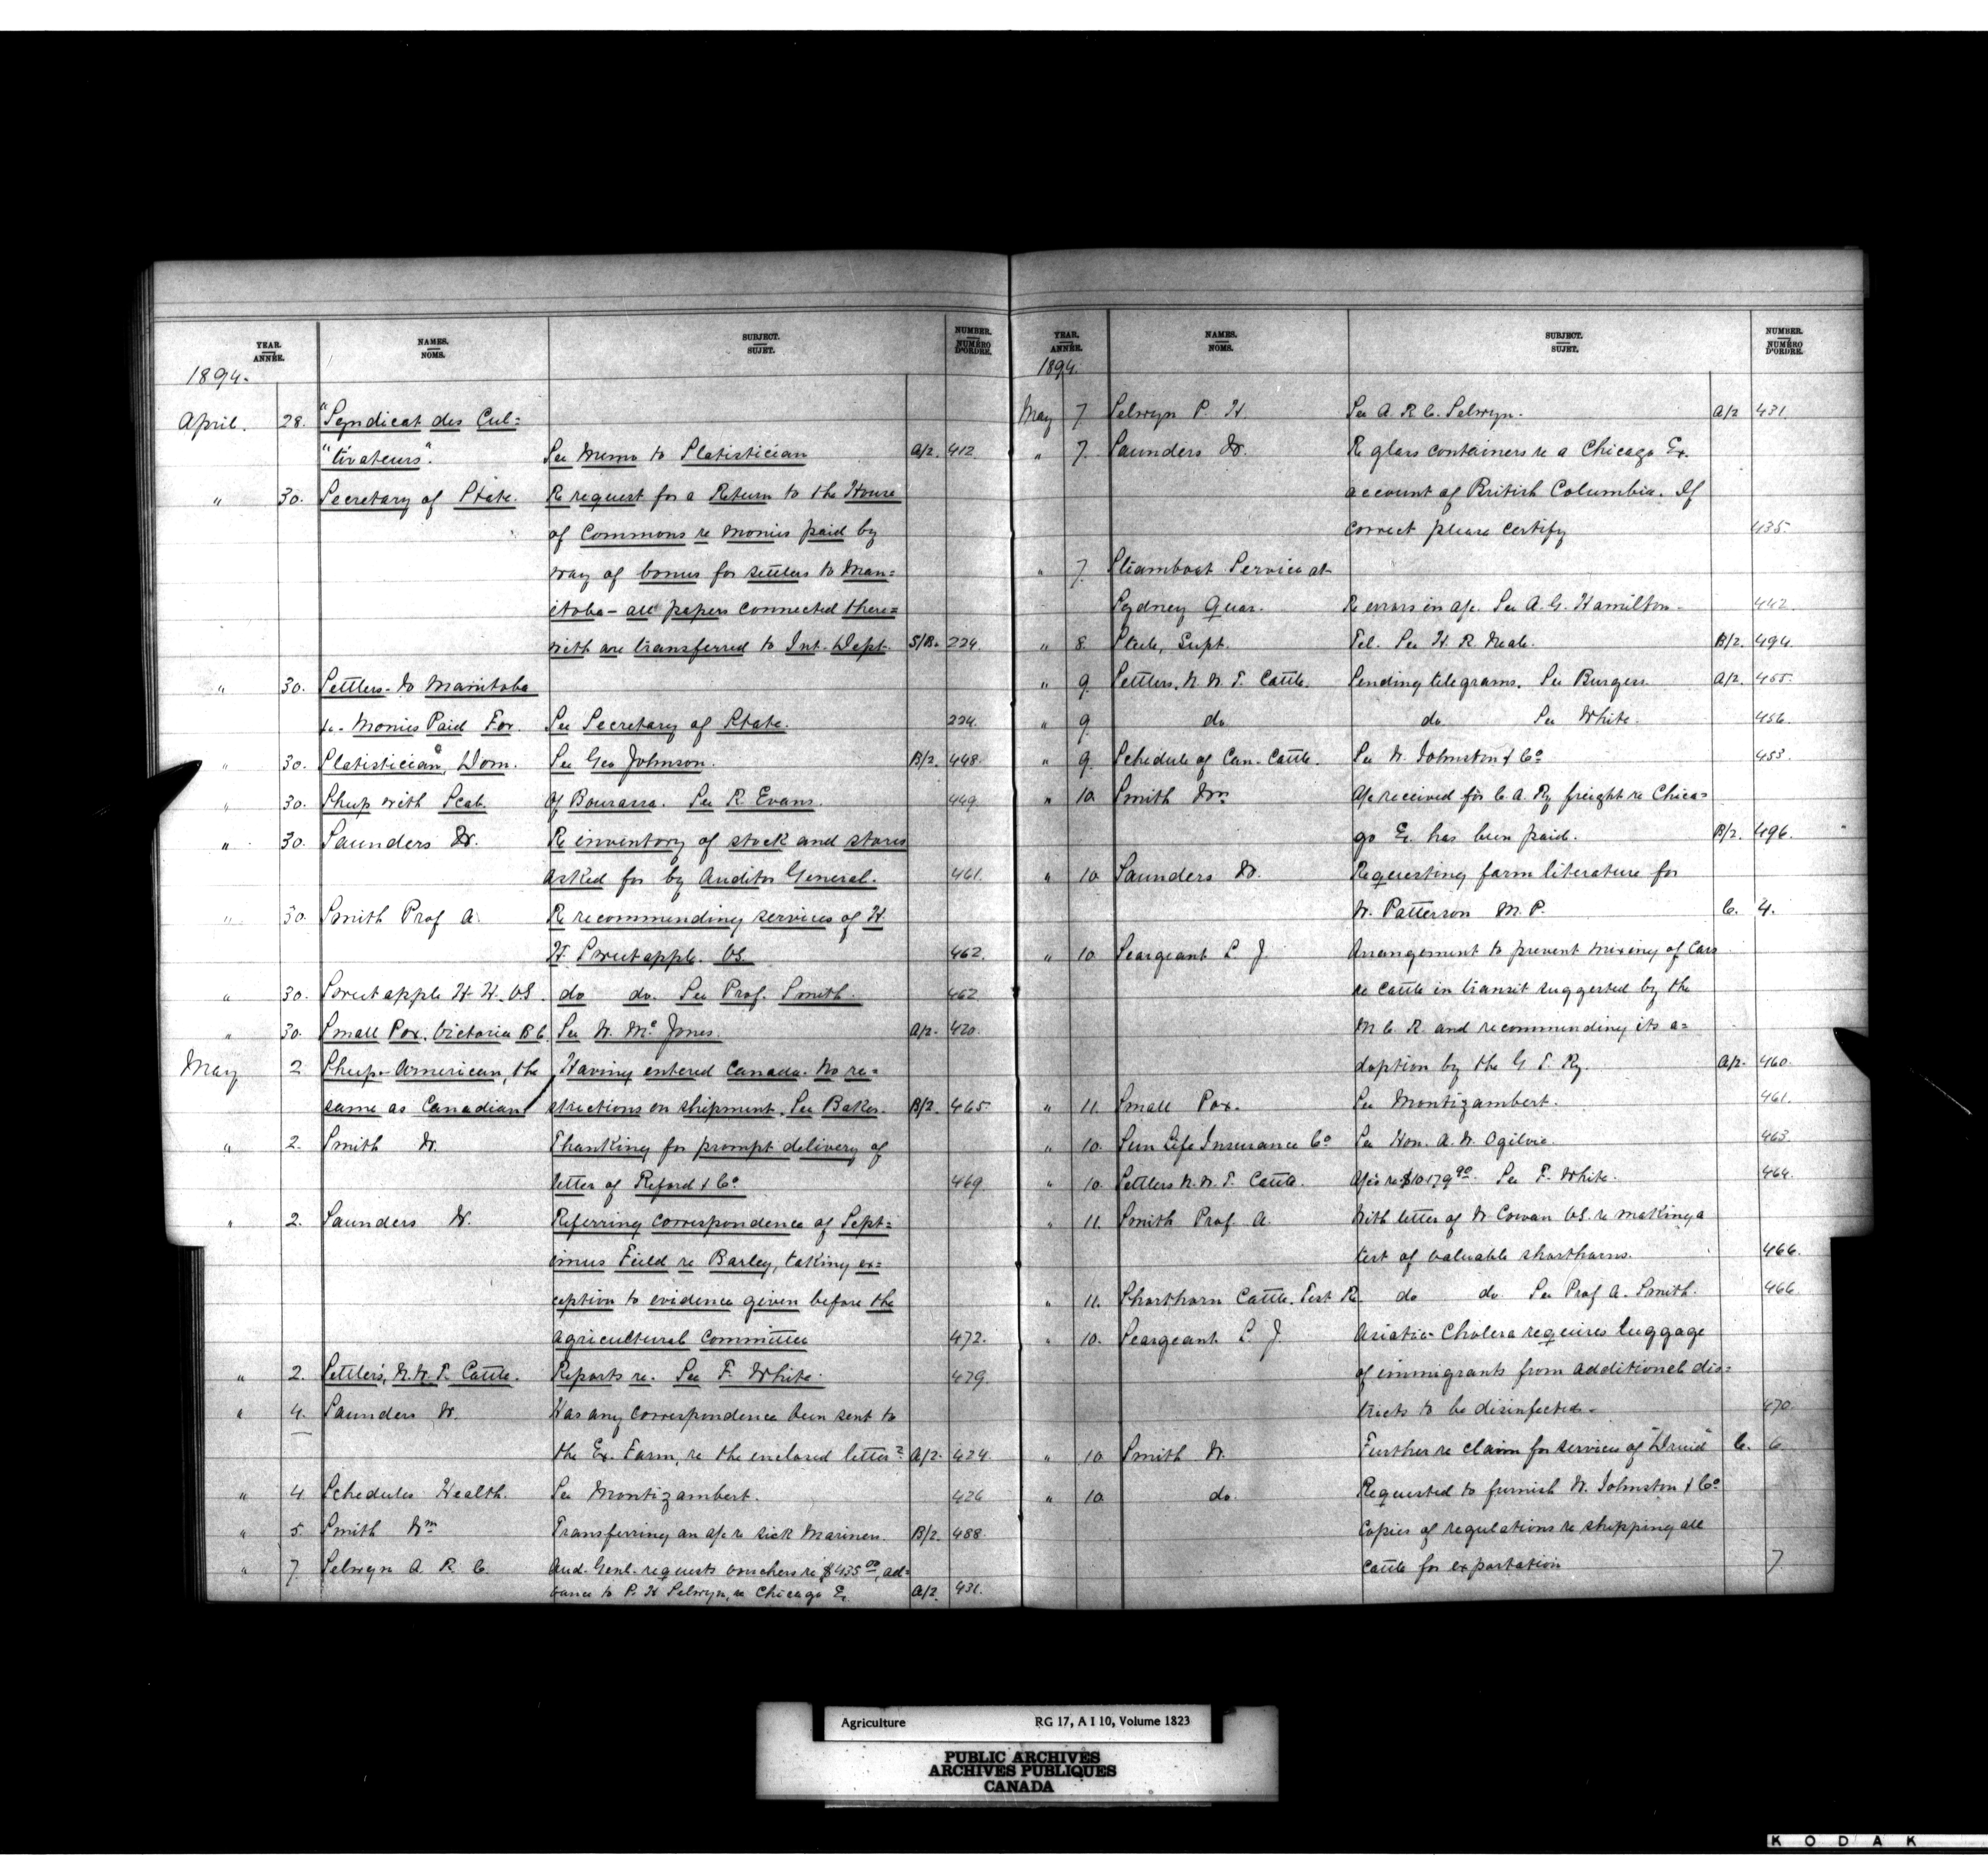 YEAR. ANNÉE. NAMES. NOMS. SUBJECT. SUJET. NUMBER. NUMÉRO D'ORDRE.
1894.
April. 28. "Syndicat des Cul=
"tivateurs". See Memo to Statistician A/2. 412
" 30. Secretary of State. Re request for a Return to the House
of Commons re monies paid by
way of bonus for settlers to Man=
itoba - all papers connected there=
with are transferred to Int. Dept. S/B. 224
" 30. Settlers - to Manitoba
- Monies Paid For. See Secretary of State. 224.
" 30. Statistician, Dom. See Geo Johnson. B/2. 448.
" 30. Sheep with Scab. Of Bourassa. See R Evans. 449.
" 30. Saunders W. Re inventory of stock and stores
asked for by Auditor General. 461.
" 30. Smith Prof A. Re recommending services of H.
H. Sweetapple. VS. 462.
" 30. Sweetapple H. H. VS. do do. See Prof. Smith. 462
" 30. Small Pox. Victoria B C. See W. Mc Jones. A/2. 420.
May 2 Sheep - American, the Having entered Canada. No re=
same as Canadian strictions on shipment. See Baker. B/2. 465
" 2. Smith W. Thanking for prompt delivery of
letter of Reford & Co. 469.
" 2. Saunders W. Referring correspondence of Sept=
imus Field re Barley, taking ex=
ception to evidence given before the
Agricultural Committee 472.
" 2. Settlers', N. W. T. Cattle. Reports re. See F. White. 479.
" 4. Saunders W. Has any correspondence been sent to
the Ex. Farm, re the enclosed letter? A/2. 424.
" 4 Schedules Health. See Montizambert. 426
" 5. Smith Wm Transferring an a/c re sick Mariners. B/2. 488.
" 7. Selwyn A. R. C. Aud. Genl. requests vouchers re $435.00, ad=
vance to P. H Selwyn, re Chicago Ex. A/2. 431.
YEAR. ANNÉE. NAMES. NOMS. SUBJECT. SUJET. NUMBER. NUMÉRO D'ORDRE.
1894.
May 7 Selwyn P. H. See A. R. C. Selwyn. A/2 431.
" 7. Saunders W. Re glass containers re a Chicago Ex.
account of British Columbia. If
correct please certify 435.
" 7. Steamboat Service at
Sydney Quar. Re errors in a/c. See A. G. Hamilton - 442.
" 8. Steele, Supt. Tel. See H. R. Neale. B/2. 494.
" 9. Settlers. N. W. T. Cattle. Sending telegrams. See Burgess A/2. 455.
" 9. do do See White. 456.
" 9. Schedule of Can. Cattle. See W. Johnston & Co 453.
" 10 Smith Wm A/c received for C. A. Ry freight re Chica=
go Ex. has been paid. B/2. 496.
" 10. Saunders W. Requesting farm literature for
W. Patterson M. P. C. 4.
" 10 Seargeant L. J. Arrangement to prevent mixing of Cars
re Cattle in transit suggested by the
M. C. R. and recommending its a=
doption by the G. T. Ry. A/2. 460.
" 11. Small Pox. See Montizambert. 461.
" 10. Sun Life Insurance Co See Hon. A. W. Ogilvie. 463.
" 10. Settlers N. W. T. Cattle. A/c's re $10179.90. See F. White. 464.
" 11. Smith Prof. A. With letter of W Cowan VS. re making a
test of valuable shorthorns. 466.
" 11. Shorthorn Cattle. Test Re do do. See Prof A. Smith. 466
" 10. Seargeant L. J. Asiatic Cholera requires luggage
of immigrants from additional dis=
tricts to be disinfected - 470
" 10 Smith W. Further re claim for services of "Druid" C. 6
" 10. do. Requested to furnish W. Johnston & Co
Copies of regulations re shipping all
Cattle for exportation 7
Agriculture RG 17, A I 10, Volume 1823
PUBLIC ARCHIVES
ARCHIVES PUBLIQUES
CANADA
KODAK